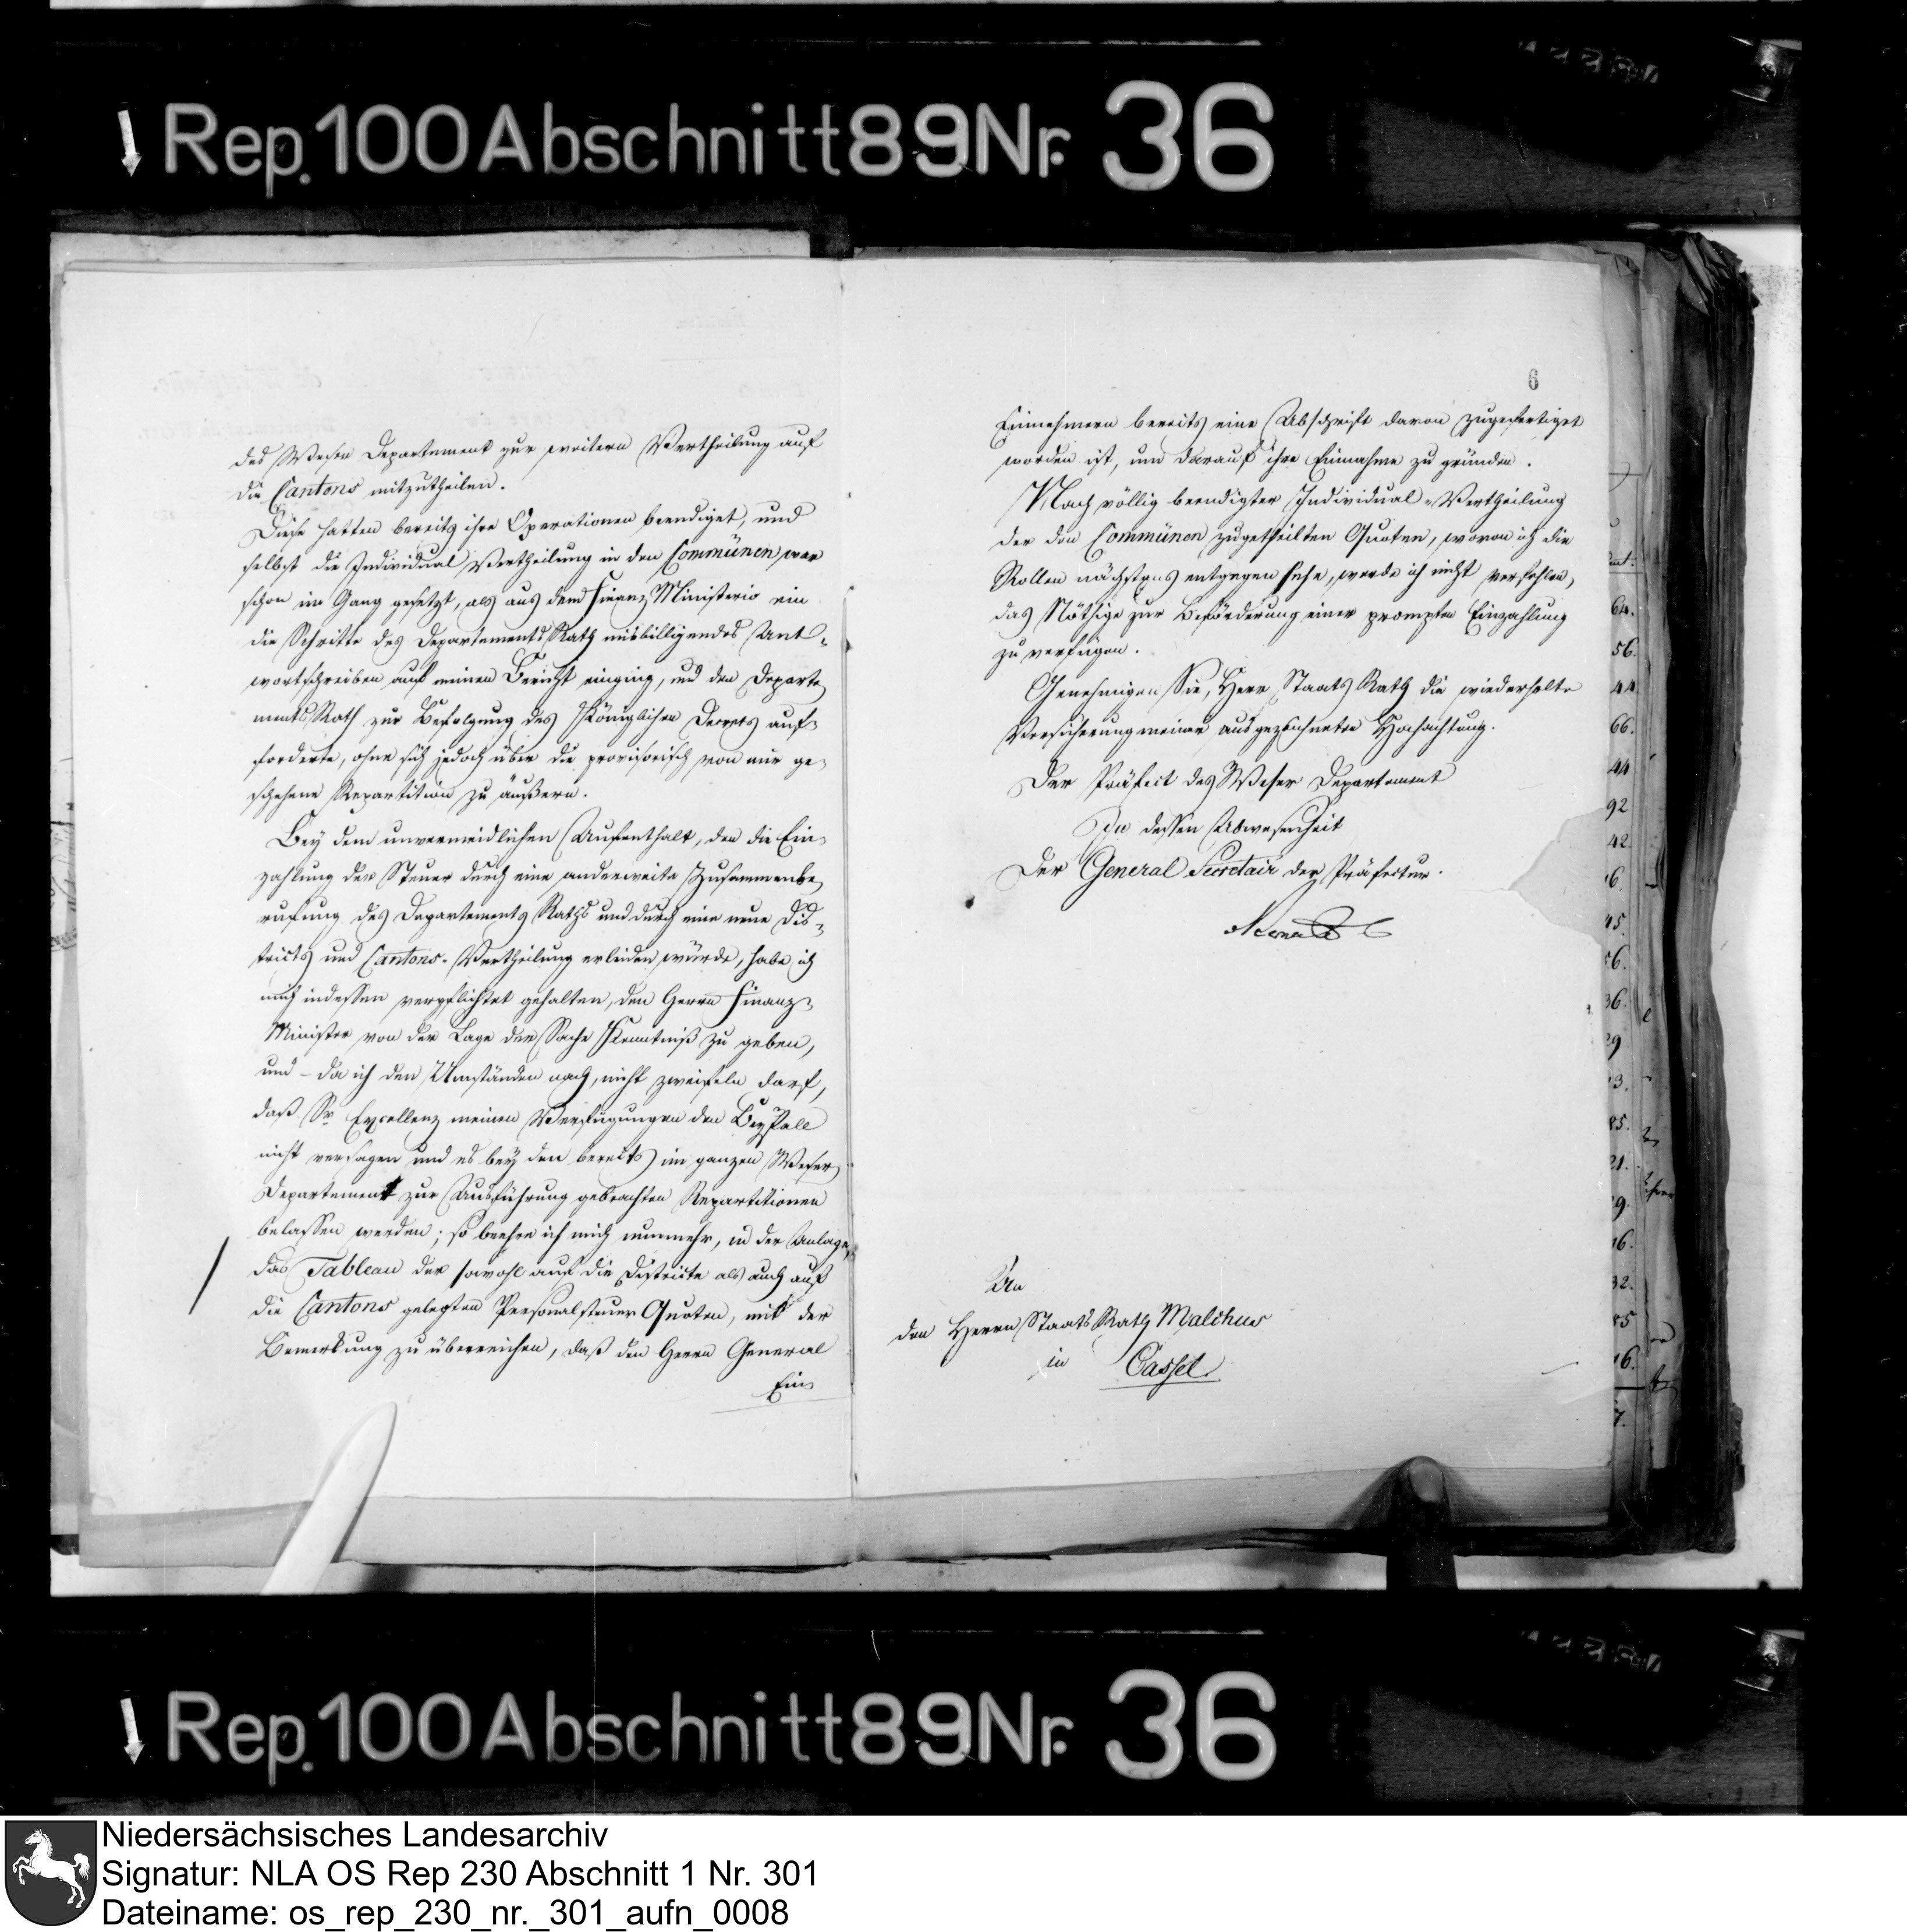 Rep. 100 Abschnitt 89 Nr. 36
des Weser Departement zur weitern Vertheilung auf
die Cantons mitzutheilen.
Diese hatten bereits ihre Operationen beendiget, und
selbst die Individual Vertheilung in den Communen war
schon im Gang gesetzt, als aus dem Finanz Ministerio ein
die Schritte des Departements Rath misbilligendes Ant-
wortschreiben auf meinen Bericht einging, und den Departe
ments Rath zur Befolgung des Königlichen Decrets auf-
forderte, ohne sich jedoch über die provisorisch von mir ge-
schehene Repartition zu äußern.
Bey dem unvermeidlichen Aufenthalt, den die Ein-
zahlung der Steuer durch eine anderweite Zusammenbe
rufung des Departements Raths und durch eine neue Dis-
tricts und Cantons-Vertheilung erleiden würde, habe ich
mich indessen verpflichtet gehalten, den Herrn Finanz-
Minister von der Lage der Sache Kenntniß zu geben,
und - da ich den Umständen nach, nicht zweifeln darf,
daß Sr Excellenz meinen Verfügungen den Beyfall
nicht versagen und es bey den bereits im ganzen Weser
Departement zur Ausführung gebrachten Repartitionen
belassen werden; so beehre ich mich nunmehr, in der Anlage,
das Tableau der sowohl auf die Districte als auch auf
die Cantons gelegten Personalsteuer Quoten, mit der
Bemerkung zu überreichen, daß den Herrn General
Ein
6
Einnehmern bereits eine Abschrift davon zugefertiget
worden ist, um darauf ihre Einnahme zu gründen.
Nach völlig beendigter Individual-Vertheilung
der den Communen zugetheilten Quoten, wovon ich die
Rollen nächstens entgegen sehe, werde ich nicht verfehlen,
das Nöthige zur Beförderung einer prompten Einzahlung
zu verfügen.
Genehmigen Sie, Herr Staats Rath die wiederholte
Versicherung meiner ausgezeichneten Hochachtung.
Der Präfect des Weser Departement
In dessen Abwesenheit
Der General Secretair der Präfectur.
An
den Herrn Staats Rath Malchus
in Cassel
64.
56.
44
66.
44
92
42.
Rep. 100 Abschnitt 89 Nr. 36
Niedersächsisches Landesarchiv
Signatur: NLA OS Rep 230 Abschnitt 1 Nr. 301
Dateiname: os_rep_230_nr._301_aufn_0008